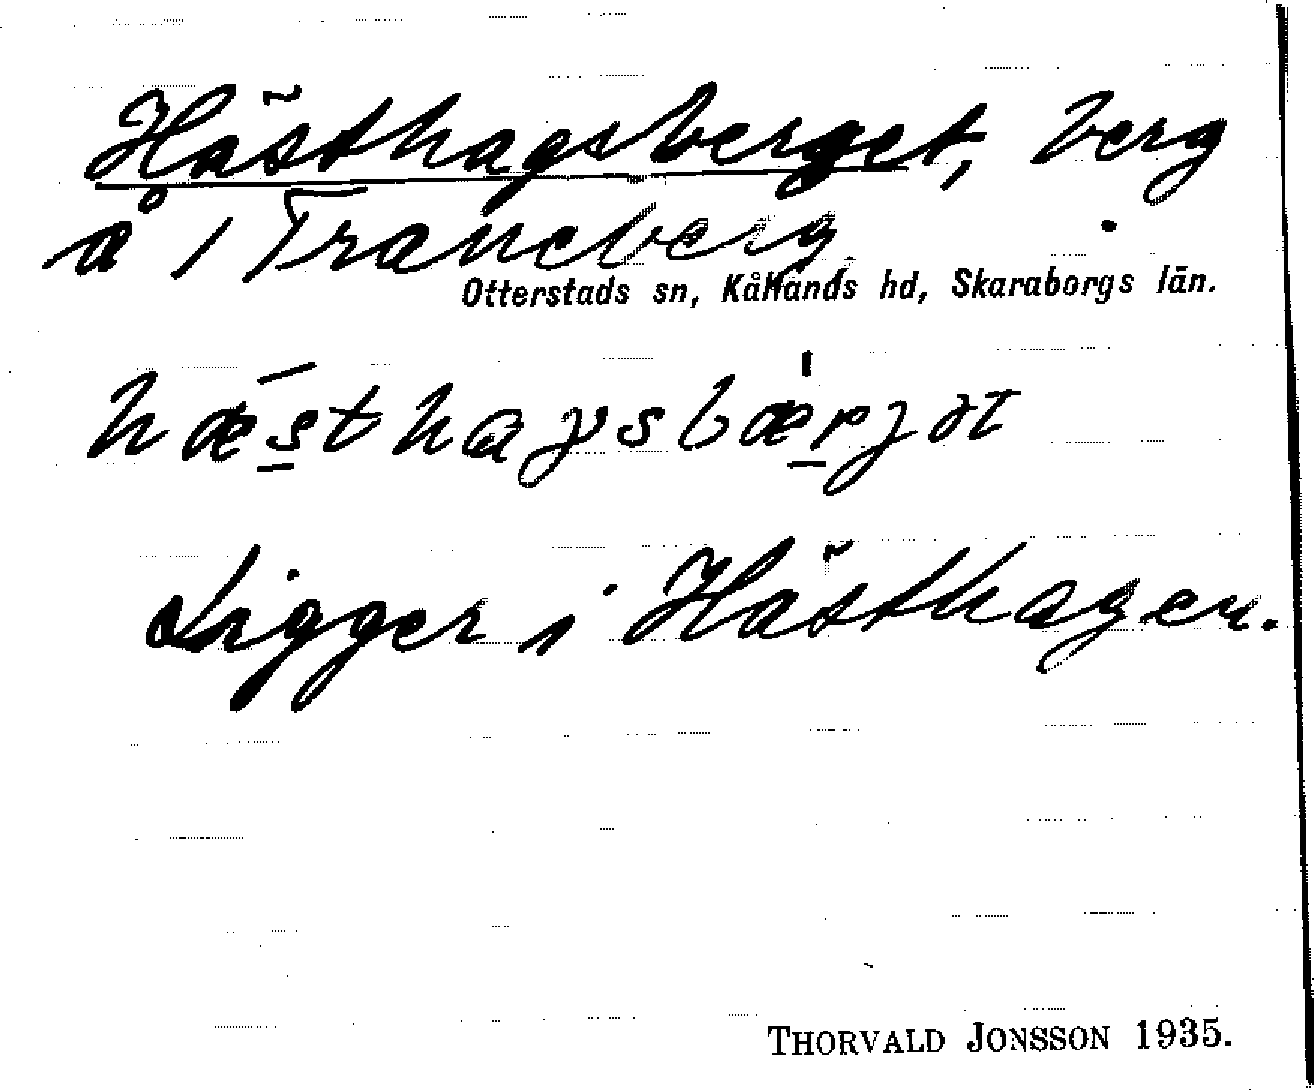 Hästhagsberget, berg
å 1 Traneberg
Otterstads sn, Kållands hd, Skaraborgs län.
hæsthagsbærjət
Ligger i Hästhagen.
THORVALD JONSSON 1935.